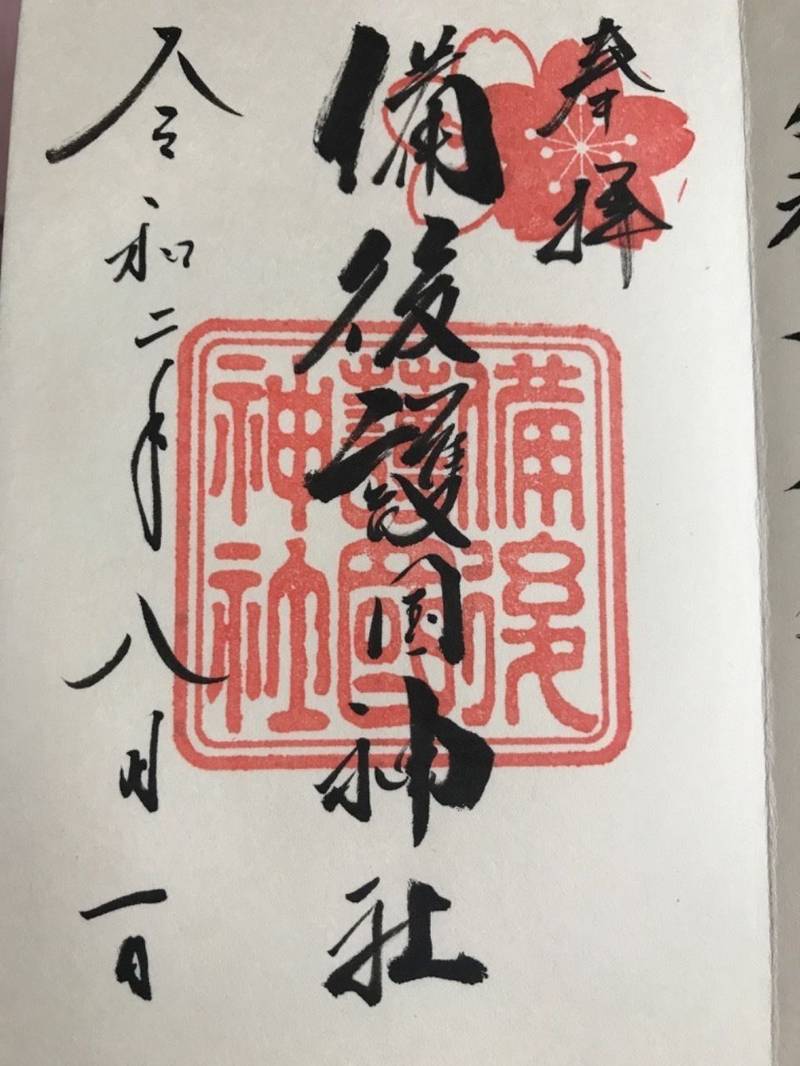 奉拝
備後護国神社
備後
護國
神社
令和二年八月一日